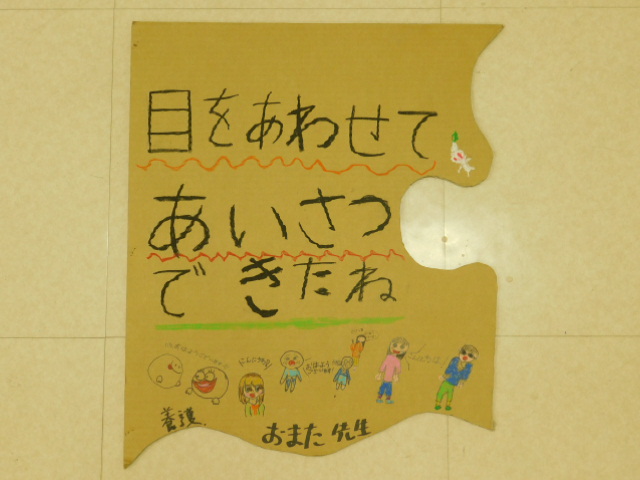 目をあわせて
あいさつ
できたね
養護
おまた先生